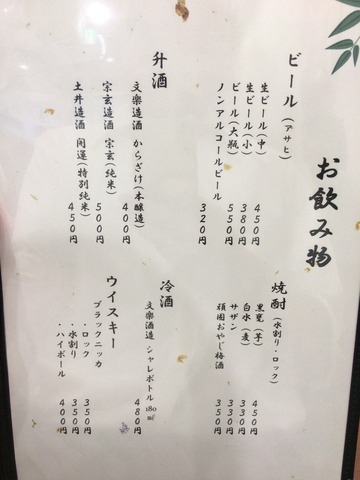 お飲み物
ビール(アサヒ)
生ビール(中) 450円
生ビール小 380円
ビール(大瓶) 550円
ノンアルコールビール 320円
升酒
文楽造酒 からざけ(本醸造) 400円
宗玄造酒 宗玄(純米) 500円
土井造酒 開運(特別純米) 450円
焼酎(水割り・ロック)
黒甕(芋) 450円
白水(麦) 330円
サザン 330円
頑固おやじ梅酒 350円
冷酒
文楽酒造 シャレボトル 180㎖ 480円
ウイスキー
ブラックニッカ
・ロック 350円
・水割り 350円
・ハイボール 400円